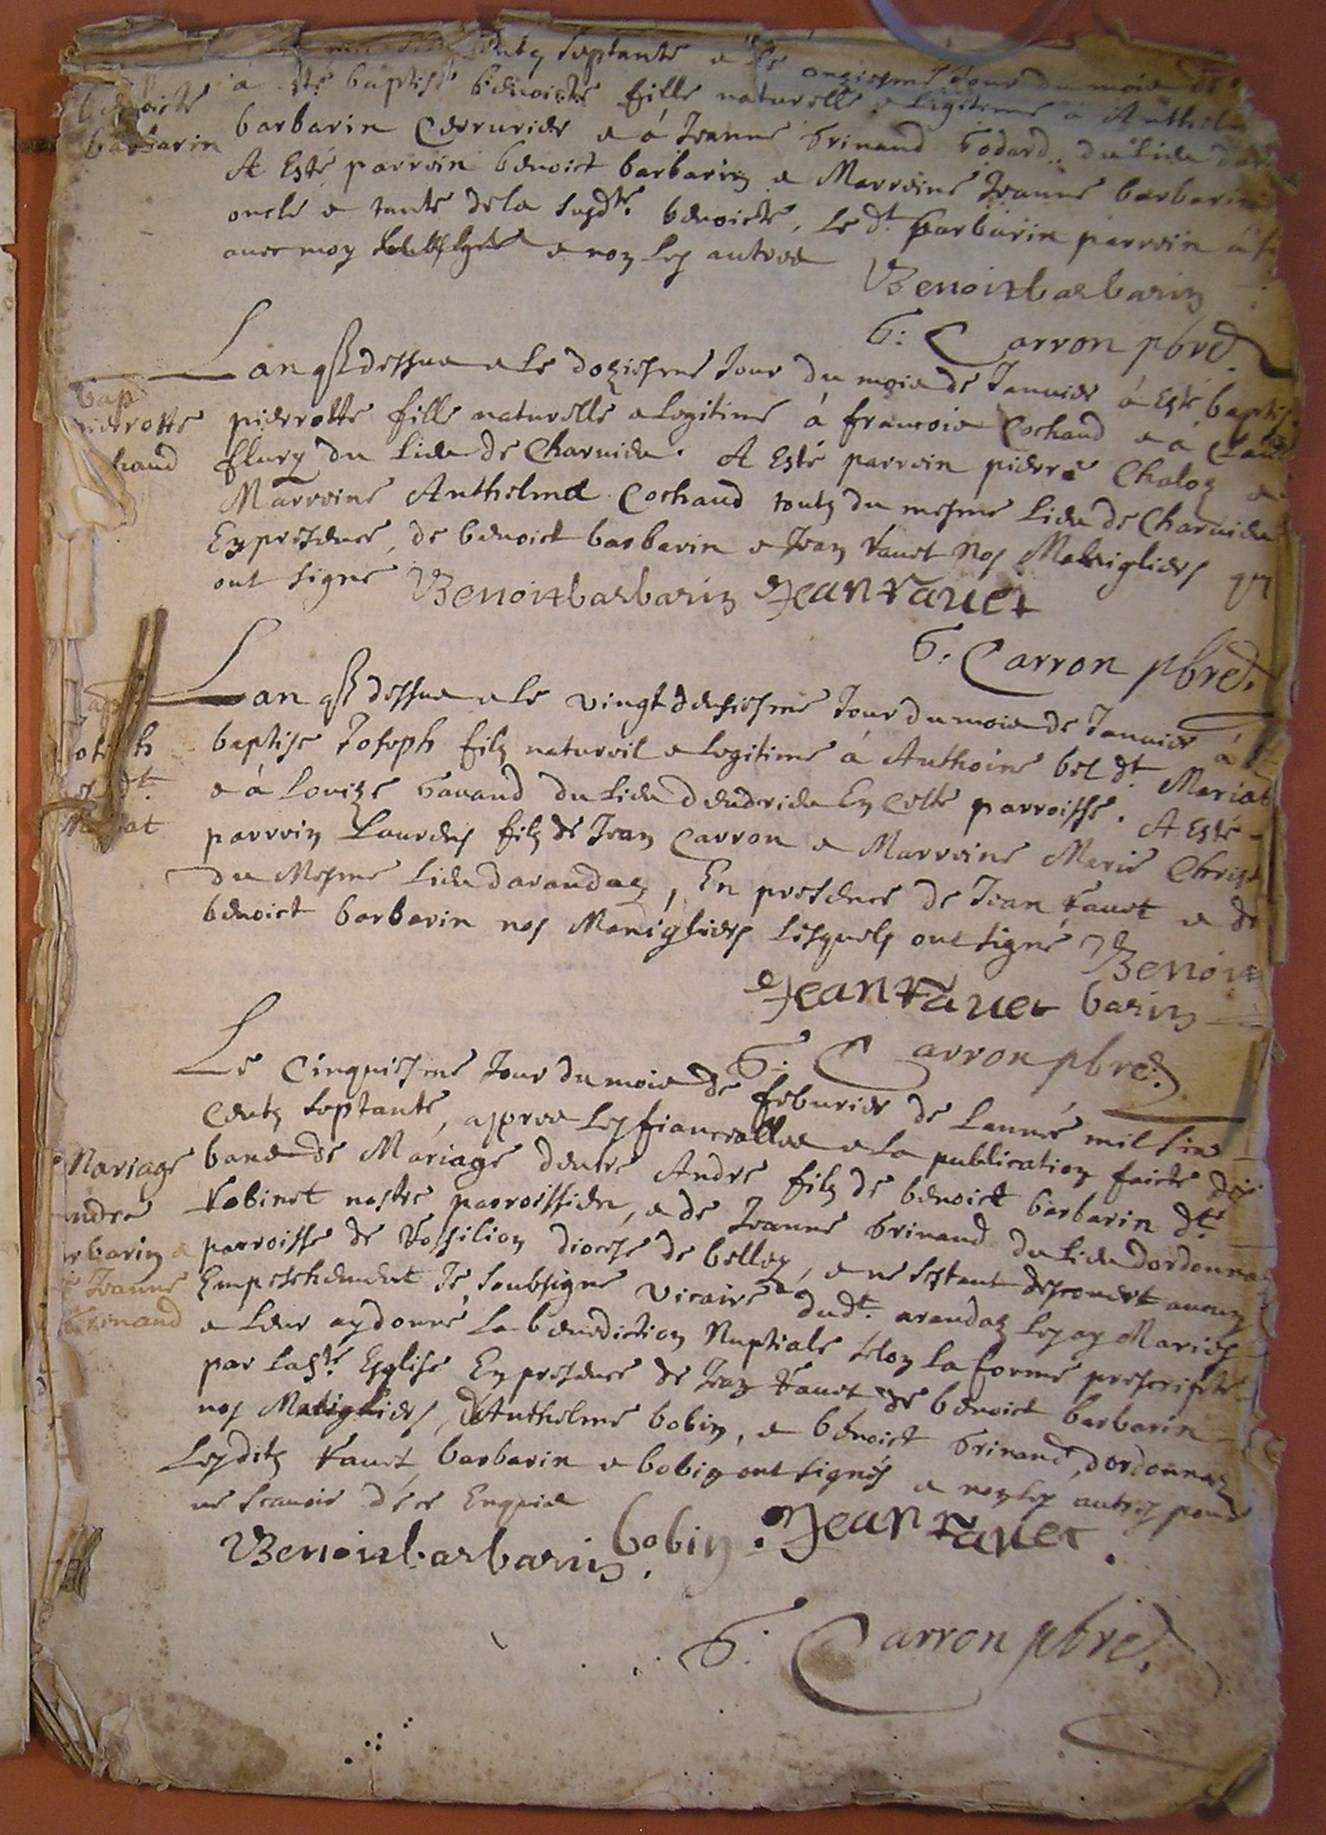 mil six centz septante & le onziesme Jour du mois de
benoiste
barbarin
a esté baptisé benoiste fille naturelle & legitime a Anthelme
barbarin Cerrurier & á Jeanne brinand godard.. du lieu
A Esté parrein benoict barbarin & Marreine Jeanne barbarin
oncle & tante de la susdte. benoiste, Le dt. barbarin parrein á
avec moy & non les autres
Benoit barbarin
G: Carron pbre
Lan q dessus & le doziesme Jour du mois de Januier á Esté baptis
bap
pierrotte
chaud
pierrotte fille naturelle & legitime á francois Cochaud & á
flury du Lieu de Charuieu. A Esté parrein pierre Chaloz &
Marreine Anthelma Cochaud toutz du mesme Lieu de Charuieu
En presence, de benoict barbarin & Jean Vauet Nos Marigliers qui
ont signé Benoit barbarin Jean Vauet
G: Carron pbre.
Lan q dessus & le vingt deusiesme Jour du mois de Januier á
Joseph
dt.
Mariat
baptise Joseph filz naturel & legitime á Anthoine bel dt. Mariat
& á Louize bauand du Lieu dendrieu En Cette parroisse. A Esté
parrein Laurens filz de Jean Carron & Marreine Marie Christ
du Mesme Lieu darandaz, En presence de Jean Vauet & de
benoict barbarin nos Marigliers Lesquels ont signé Benoit
Jean Vauet barin
G: Carron pbre.
Le Cinquiesme Jour du mois de feburier de Lannée mil six
Centz septante, apres Les fiancealles & La publication faicte des
Mariage
Andre
barbarin &
Jeanne
brinand
bans de Mariage dentre Andre filz de benoict barbarin dt.
Robinet nostre parroissien, & de Jeanne brinand du Lieu dordonnaz
parroisse de Vossilion diocese de belley, & ne sestant descouert aucun
Empeschement Je, soubsigne vicaire dudt. arandaz Les ay Mariés
& Leur ay donné La benediction Nuptiale selon La forme prescripte
par La Ste. Esglise En presence de Jean Vauet, de benoict barbarin
nos Marigliers, D'Anthelme bobin, & benoict brinand, dordonnaz
Lesditz Vauet barbarin & bobin ont signés & non les autres pour
ne scauoir d'éce Enquis
Benoit barbarin. bobin. Jean Vauet.
G: Carron pbre.